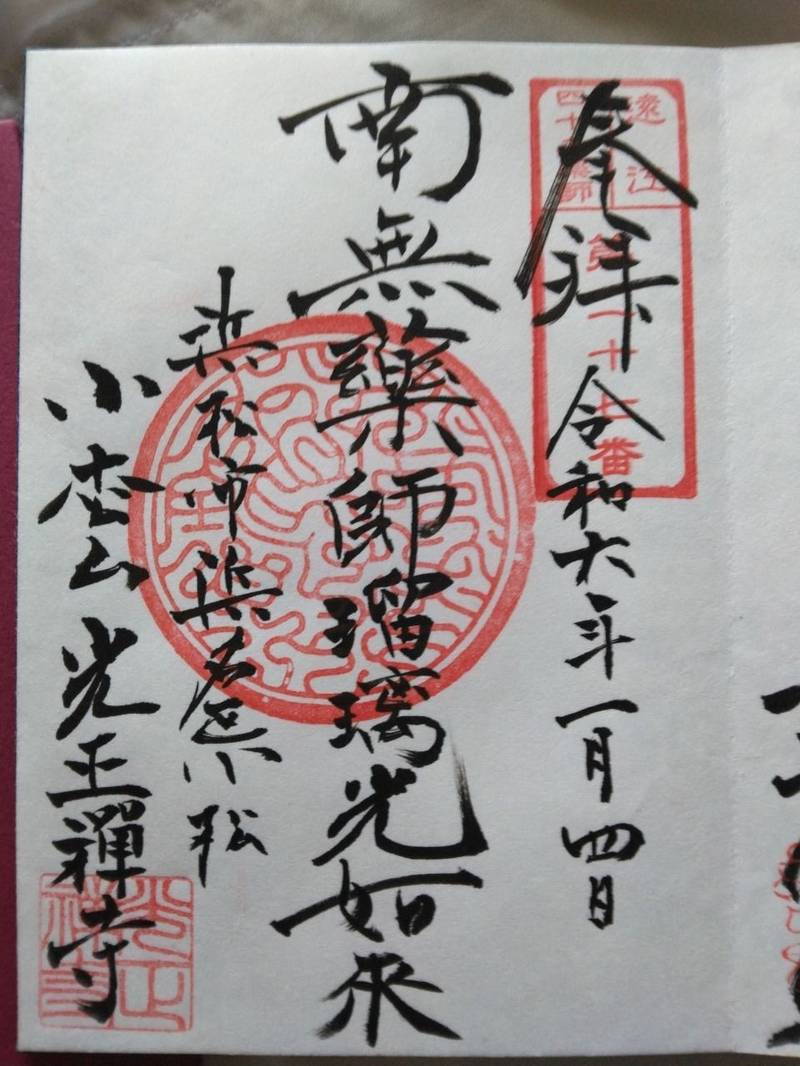 奉拝 令和六年一月四日
遠江
四十九薬師
第二十七番
南無薬師瑠璃光如来
浜松市浜名区小松
小松山 光正禅寺